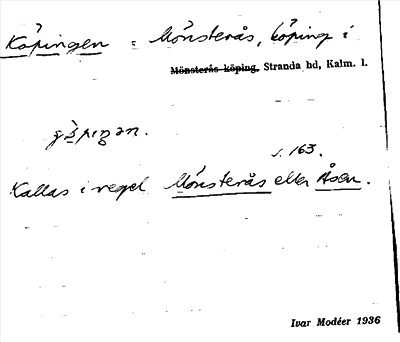 Köpingen = Mönsterås, köping i
Mönsterås köping, Stranda hd, Kalm. l.
s. 163.
Kallas i regel Mönsterås eller Åsen.
Ivar Modéer 1936